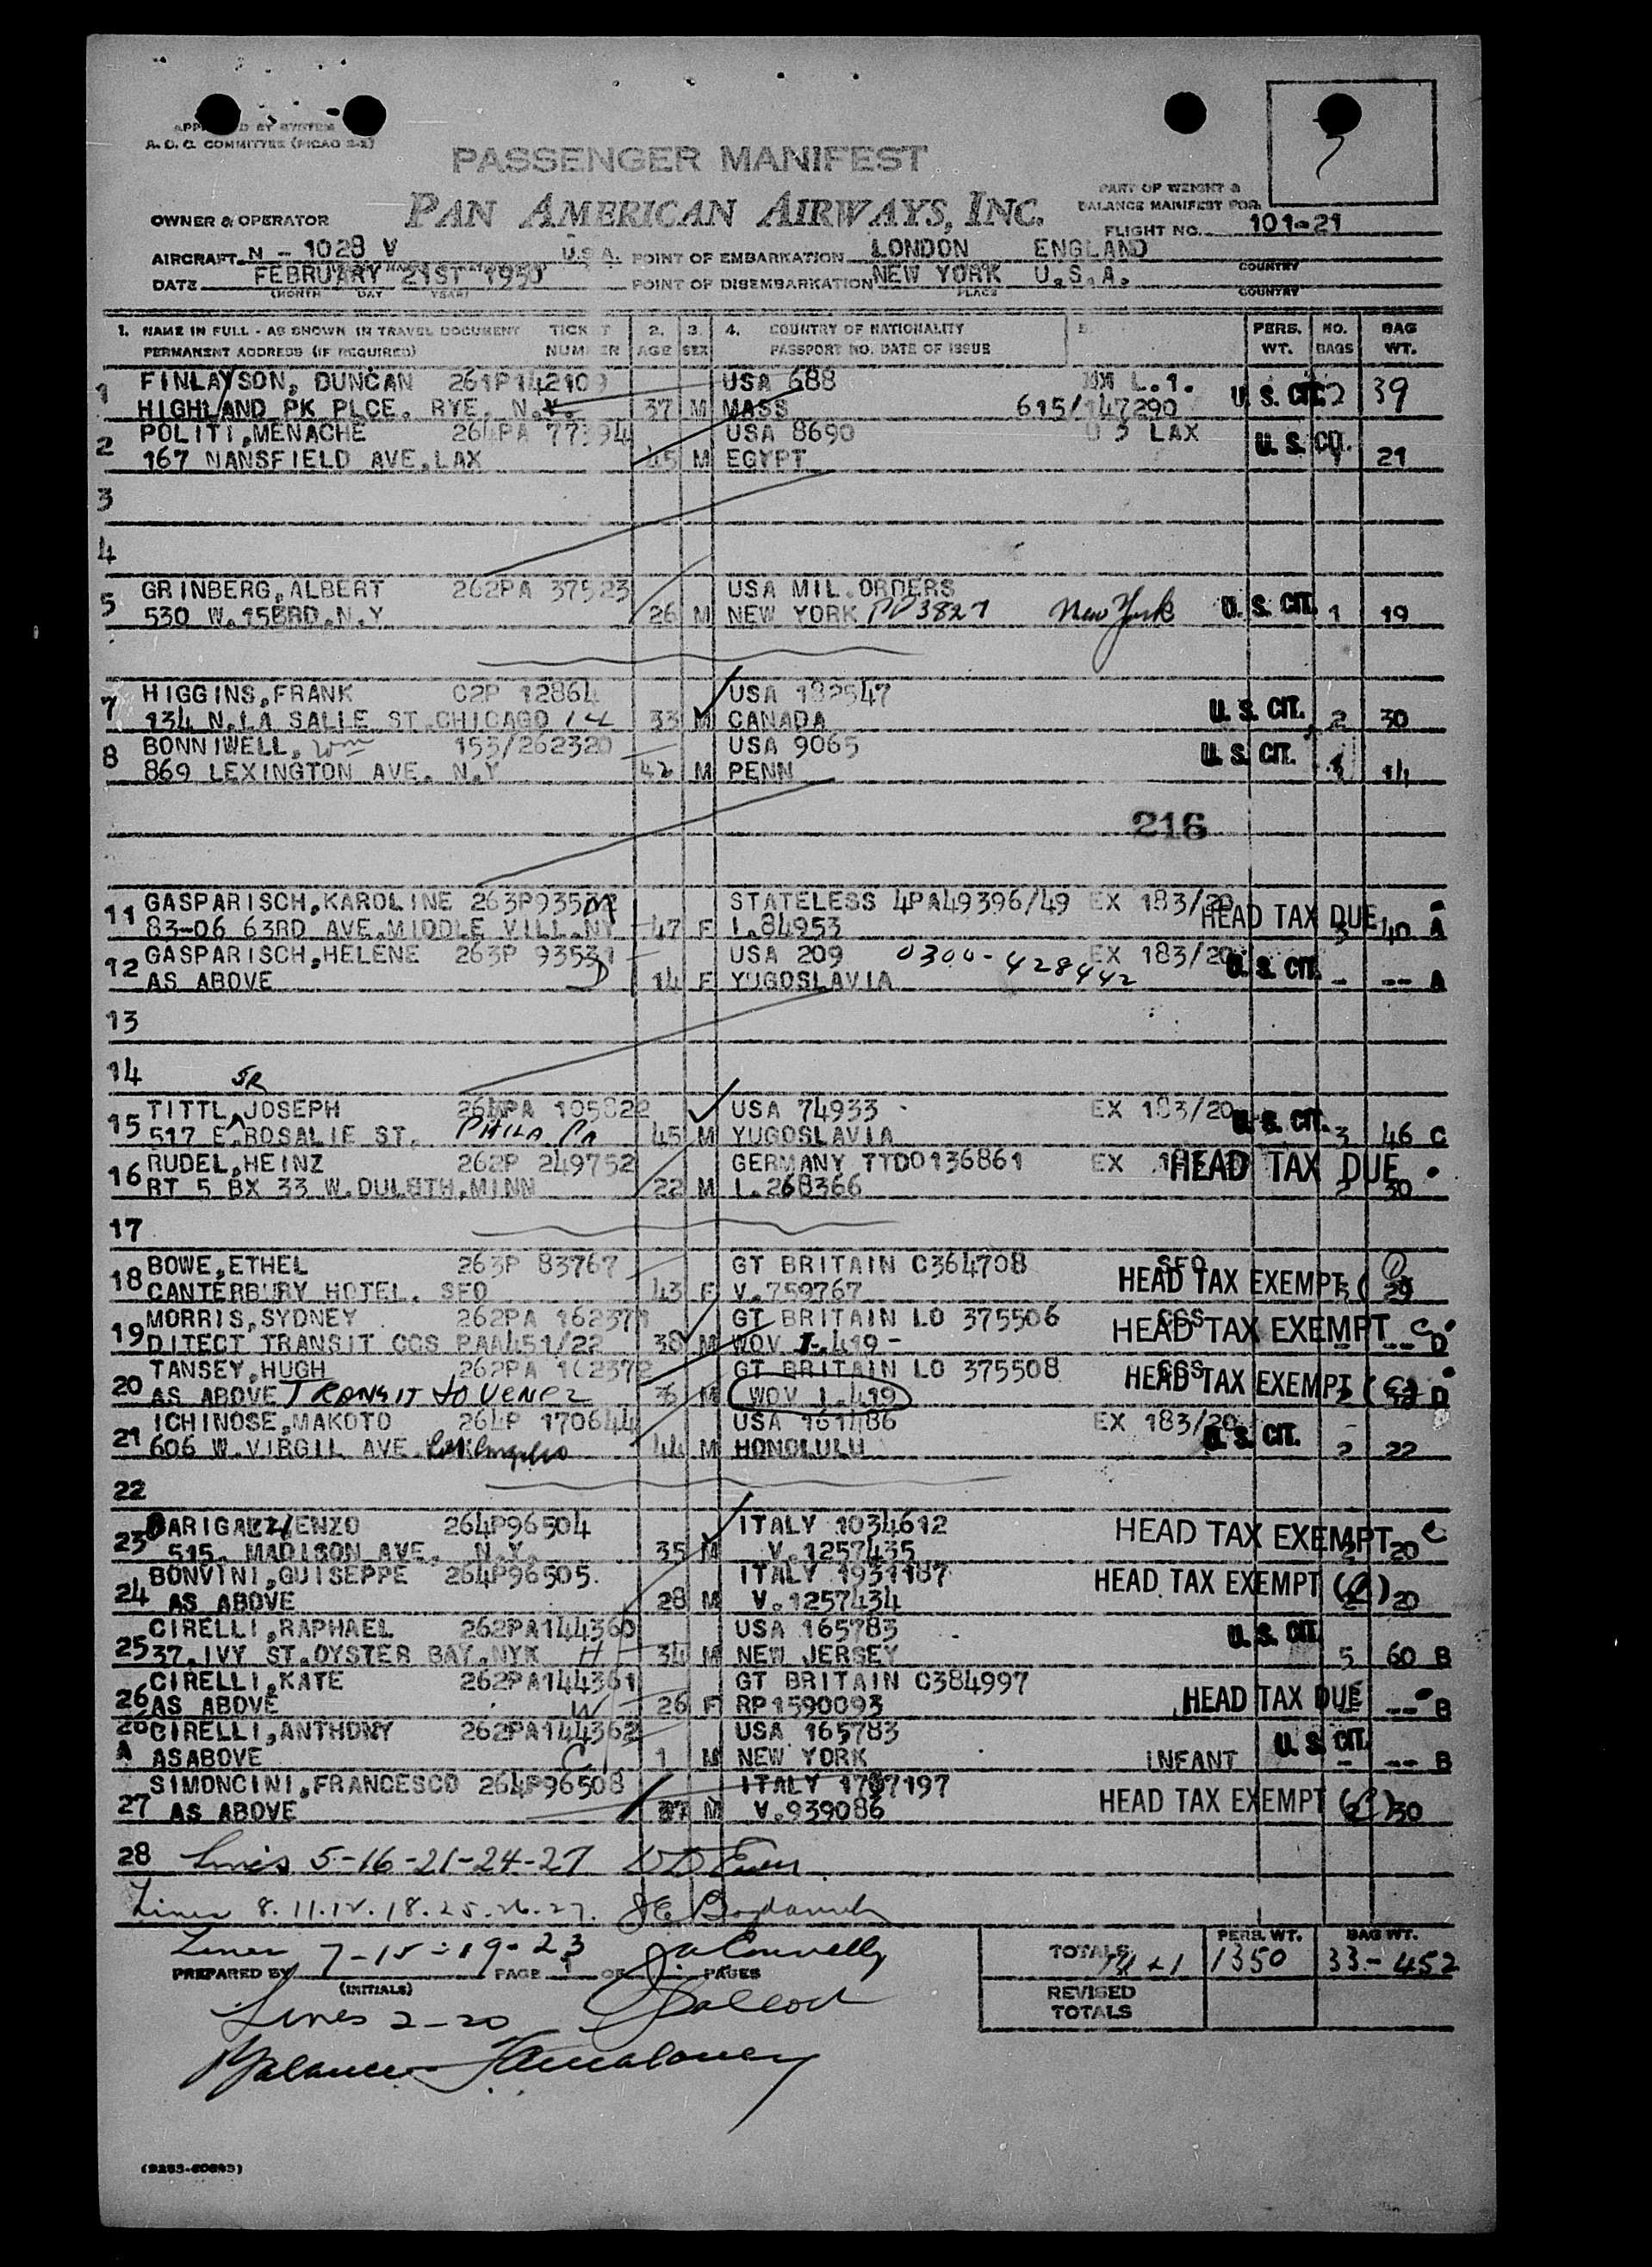 A. O. C. COMMITTEE (PICAO 2-2)
PASSENGER MANIFEST
PART OF WEIGHT &
BALANCE MANIFEST FOR
OWNER & OPERATOR PAN AMERICAN AIRWAYS, INC.
FLIGHT NO. 101-21
AIRCRAFT N - 1028 V U.S.A. POINT OF EMBARKATION LONDON ENGLAND
COUNTRY
DATE FEBRUARY 21ST 1950 POINT OF DISEMBARKATION NEW YORK U.S.A.
(MONTH DAY YEAR) PLACE COUNTRY
1. NAME IN FULL - AS SHOWN IN TRAVEL DOCUMENT TICKET 2. 3. 4. COUNTRY OF NATIONALITY PERS. NO. BAG
PERMANENT ADDRESS (IF REQUIRED) NUMBER AGE SEX PASSPORT NO. DATE OF ISSUE WT. BAGS WT.
1 FINLAYSON, DUNCAN USA 688 L.1. U. S. CIT. 2 39
HIGHLAND PK PLCE. RYE. N.Y. 37 M MASS 615/147290
2 POLITI, MENACHE 264PA 77394 USA 8690 LAX U. S. CIT.
167 NANSFIELD AVE, LAX M EGYPT 21
3
4
5 GRINBERG, ALBERT 262PA 37523 USA MIL. ORDERS
530 W. N.Y 26 M NEW YORK PP3827 New York U. S. CIT. 1 19
7 HIGGINS, FRANK C2P 12864 USA 182547
134 N.LA SALLE ST. CHICAGO 33 M CANADA U. S. CIT. 2 30
8 BONNIWELL, Wm 153/262320 USA 9065 U. S. CIT.
869 LEXINGTON AVE. N.Y 42 M PENN 14
216
11 GASPARISCH, KAROLINE STATELESS 4PA49396/49 EX 183/20 HEAD TAX DUE
83-06 63RD AVE. MIDDLE VILL. NY 47 F I.84953 40 A
12 GASPARISCH, HELENE 263P 93531 USA 209 0300-428442 EX 183/20 U. S. CIT.
AS ABOVE D 14 F YUGOSLAVIA - -- A
13
14
SR
15 TITTL, JOSEPH 264PA 105822 USA 74933 EX 183/20 U. S. CIT.
517 E. ROSALIE ST. PHILA. PA 45 M YUGOSLAVIA 3 46 C
16 RUDEL, HEINZ 262P 249752 GERMANY TTD0136861 EX HEAD TAX DUE
RT 5 BX 33 W. DULUTH, MINN 22 M I.268366 2 30
17
18 BOWE, ETHEL 263P 83767 GT BRITAIN C364708 SFO
CANTERBURY HOTEL. SFO 43 F V.759767 HEAD TAX EXEMPT
19 MORRIS, SYDNEY GT BRITAIN LO 375506 CCS HEAD TAX EXEMPT
DITECT TRANSIT CCS PAA451/22 38 M WOV I.419 - -- D
20 TANSEY, HUGH GT BRITAIN LO 375508 CCS HEAD TAX EXEMPT
AS ABOVE TRANSIT to VENEZ M WOV I.419 D
21 ICHINOSE, MAKOTO 264P 170644 USA 161486 EX 183/20 U. S. CIT.
606 W. VIRGIL AVE. Los Angeles 44 M HONOLULU 2 22
22
23 ENZO 264P96504 ITALY 1034612 HEAD TAX EXEMPT
515. MADISON AVE. N.Y. 35 M V.1257435 20
24 BONVINI, GUISEPPE 264P96505. ITALY 1931187 HEAD TAX EXEMPT
AS ABOVE 28 M V.1257434 20
25 CIRELLI, RAPHAEL 262PA144360 USA 165783 U. S. CIT.
37, IVY ST. OYSTER BAY. NYK H 34 M NEW JERSEY 5 60 B
26 CIRELLI, KATE 262PA144361 GT BRITAIN C384997 HEAD TAX DUE
AS ABOVE W 26 F RP1590093 -- B
26 CIRELLI, ANTHONY 262PA144362 USA 165783 U. S. CIT.
A ASABOVE C 1 M NEW YORK INFANT - -- B
27 SIMONCINI, FRANCESCO 264P96508 ITALY HEAD TAX EXEMPT
AS ABOVE 37 M V.939086 30
28 Lines 5-16-21-24-27
Lines 8.11.12.18.25.26.27.
Lines 7-15-19-23
PREPARED BY (INITIALS) PAGE 1 OF PAGES
TOTALS PERS. WT. 1350 BAG WT. 33-452
REVISED
TOTALS
Lines 2-20
Balance